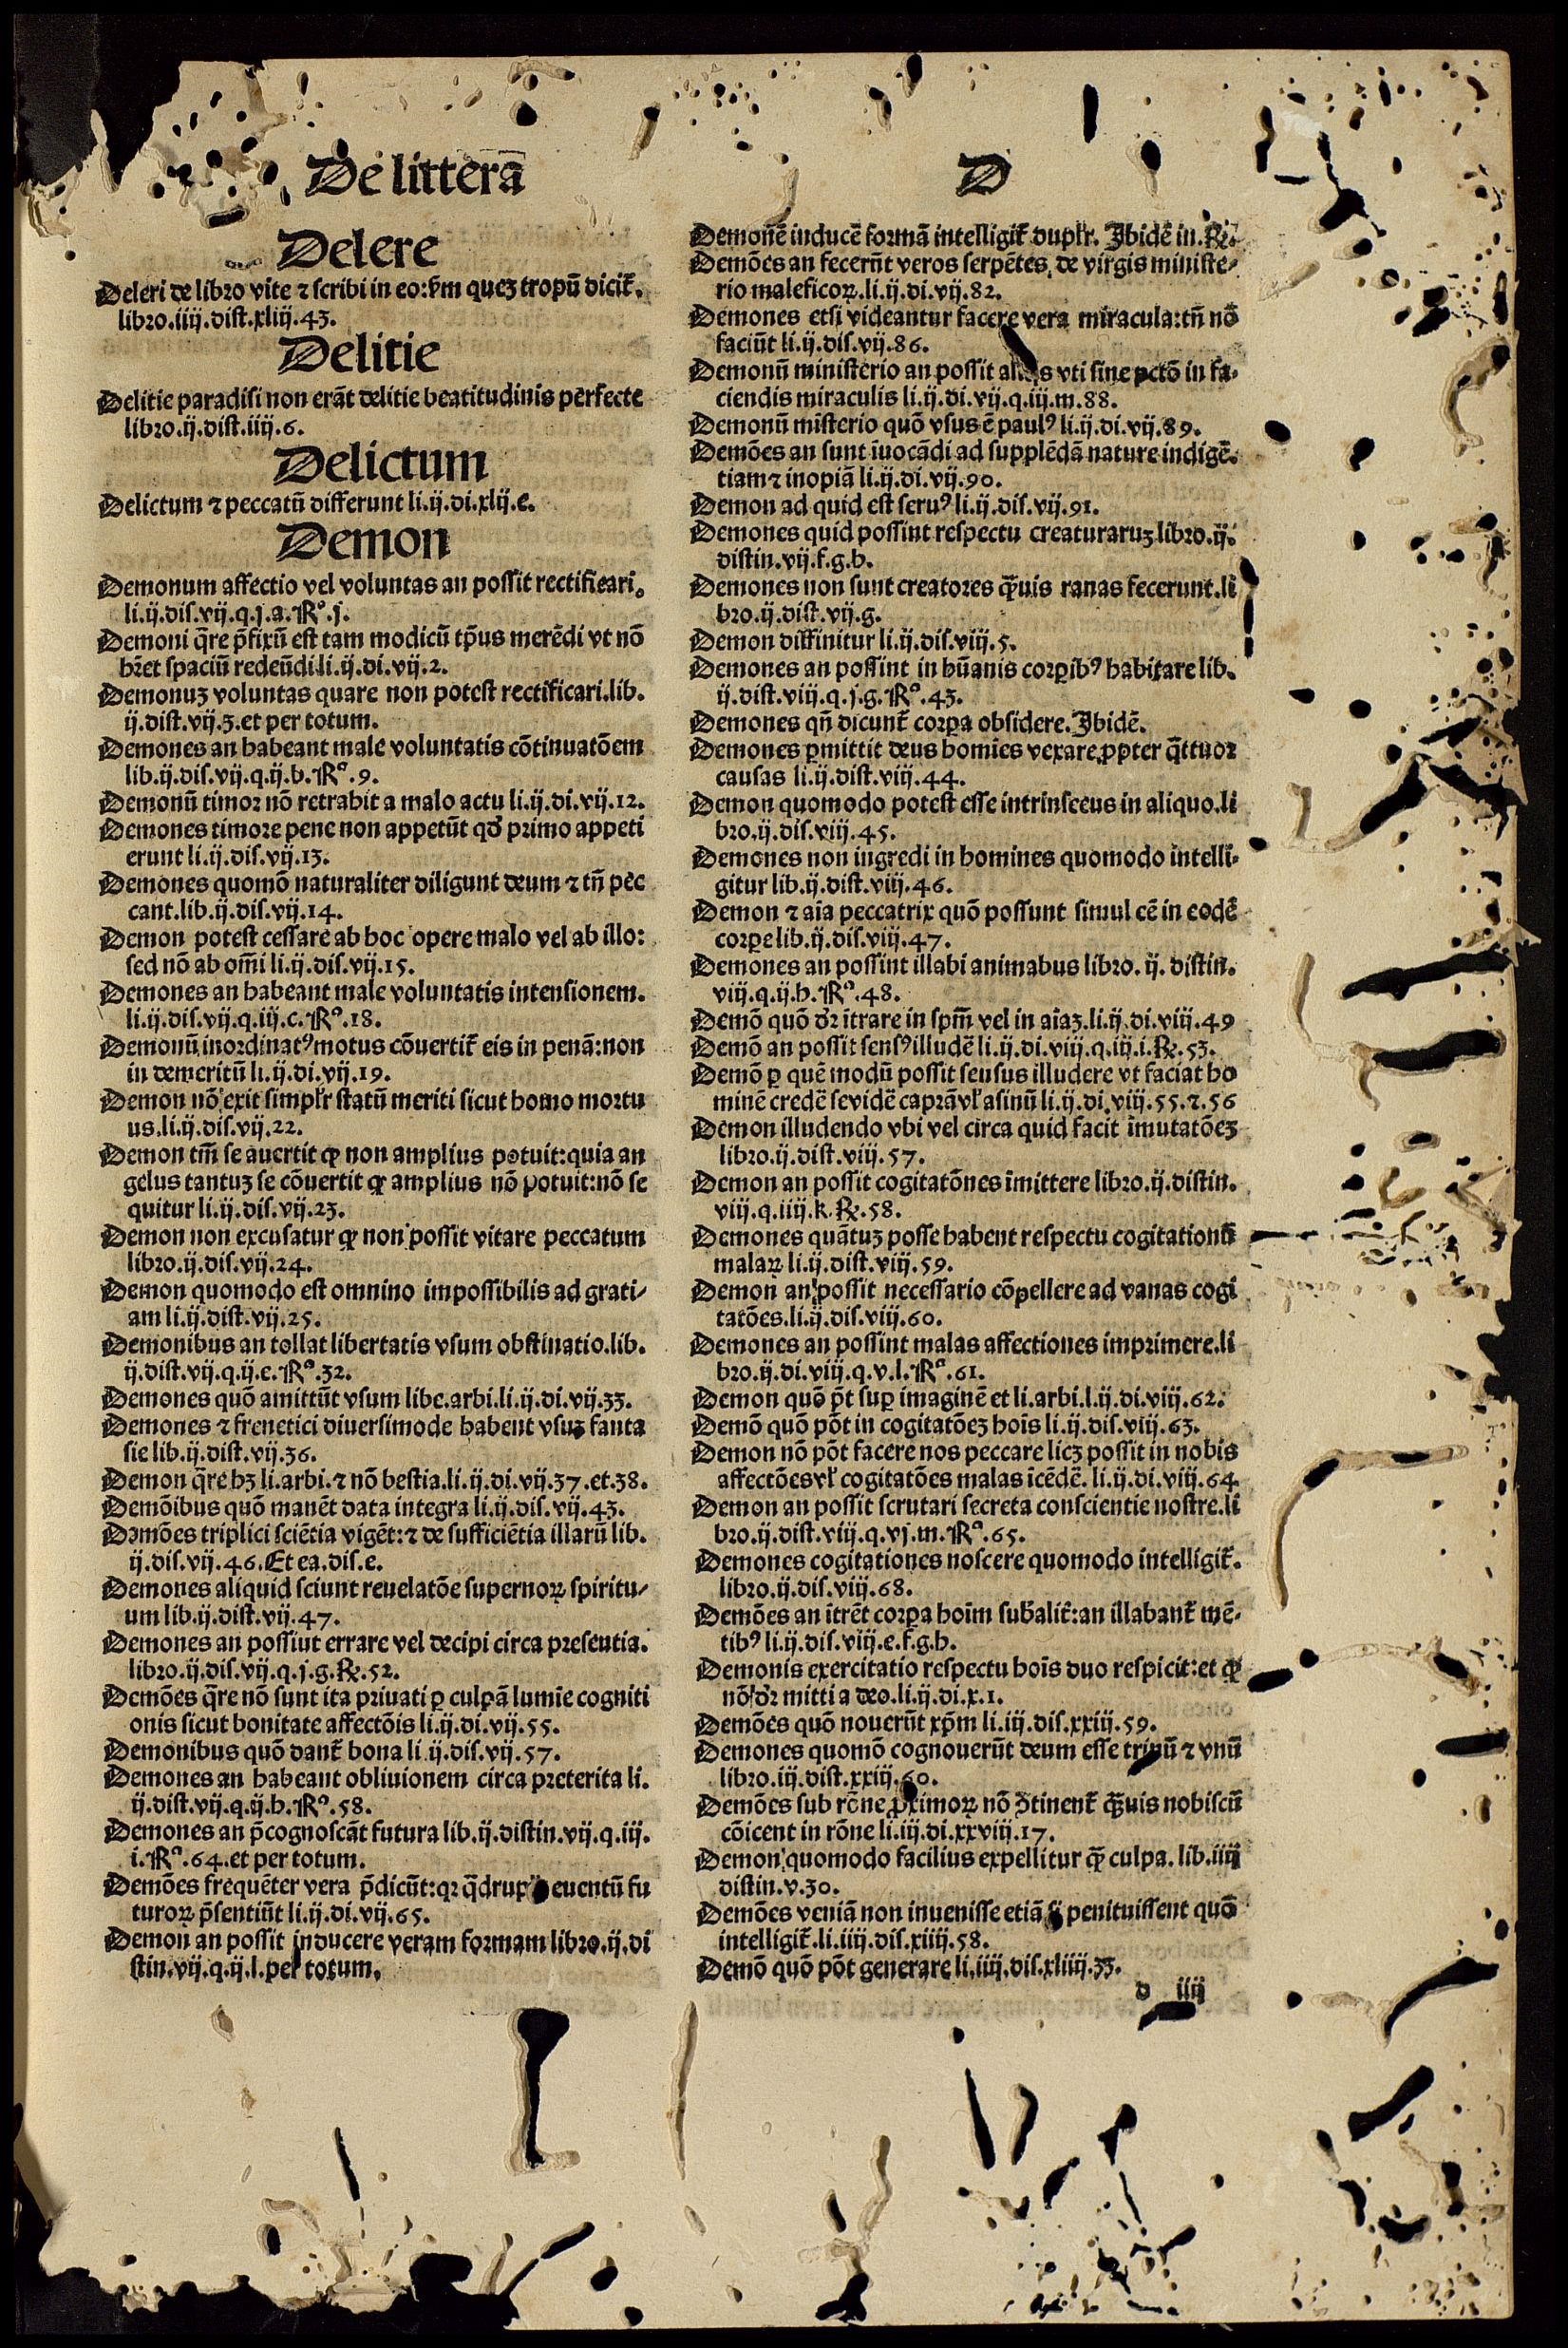 De litterā
D
Delere
Deleri de libro vite ⁊ scribi in eo: quez tropū dicit̄.
libro.iiij.dist.xliij.43.
Delitie
Delitie paradisi non erāt delitie beatitudinis perfecte
libro.ij.dist.iiij.6.
Delictum
Delictum ⁊ peccatū differunt li.ij.di.xlij.e.
Demon
Demonum affectio vel voluntas an possit rectificari.
li.ij.dis.vij.q.j.a.Rº.j.
Demoni q̄re p̄fixū est tam modicū tp̄us merēdi vt nō
hr̄et spaciū redeūdi.li.ij.di.vij.2.
Demonuz voluntas quare non potest rectificari.lib.
ij.dist.vij.3.et per totum.
Demones an habeant male voluntatis cōtinuatōem
lib.ij.dis.vij.q.ij.b.Rº.9.
Demonū timor nō retrahit a malo actu li.ij.di.vij.12.
Demones timore pene non appetūt qd̓ primo appeti
erunt li.ij.dis.vij.13.
Demones quomō naturaliter diligunt deum ⁊ tn̄ pec
cant.lib.ij.dis.vij.14.
Demon potest cessare ab hoc opere malo vel ab illo:
sed nō ab om̄i li.ij.dis.vij.15.
Demones an habeant male voluntatis intensionem.
li.ij.dis.vij.q.iij.c.Rº.18.
Demonū inordinatꝰ motus cōuertit̄ eis in penā:non
in demeritū li.ij.di.vij.19.
Demon nō exit simpl̓r statū meriti sicut homo mortu
us.li.ij.dis.vij.22.
Demon tm̄ se auertit ꝙ non amplius potuit:quia an
gelus tantuz se cōuertit ꝙ amplius nō potuit:nō se
quitur li.ij.dis.vij.23.
Demon non excusatur ꝙ non possit vitare peccatum
libro.ij.dis.vij.24.
Demon quomodo est omnino impossibilis ad grati⸗
am li.ij.dist.vij.25.
Demonibus an tollat libertatis vsum obstinatio.lib.
ij.dist.vij.q.ij.e.Rº.32.
Demones quō amittūt vsum libe.arbi.li.ij.di.vij.33.
Demones ⁊ frenetici diuersimode habent vsuz fanta
sie lib.ij.dist.vij.36.
Demon q̄re hꝫ li.arbi.⁊ nō bestia.li.ij.di.vij.37.et.38.
Demōibus quō manēt data integra li.ij.dis.vij.43.
Demōes triplici sciētia vigēt:⁊ de sufficiētia illarū lib.
ij.dis.vij.46.Et ea.dis.e.
Demones aliquid sciunt reuelatōe supernoꝝ spiritu⸗
um lib.ij.dist.vij.47.
Demones an possiut errare vel decipi circa presentia.
libro.ij.dis.vij.q.j.g.℞.52.
Demōes q̄re nō sunt ita priuati ꝑ culpā lumie cogniti
onis sicut bonitate affectōis li.ij.di.vij.55.
Demonibus quō dant̄ bona li.ij.dis.vij.57.
Demones an habeant obliuionem circa preterita li.
ij.dist.vij.q.ij.h.Rº.58.
Demones an p̄cognoscāt futura lib.ij.distin.vij.q.iij.
i.Rº.64.et per totum.
Demōes frequēter vera p̄dicūt:qꝛ euentū fu
turoꝝ p̄sentiūt li.ij.di.vij.65.
Demon an possit inducere veram formam libro.ij.di
stin.vij.q.ij.l.per totum.
Demonē inducē formā intelligit̄ dupl̓r. Ibidē in.℞.
Demōes an fecerūt veros serpētes de virgis ministe⸗
rio maleficoꝝ.li.ij.di.vij.82.
Demones etsi videantur facere vera miracula:tn̄ nō
faciūt li.ij.dis.vij.86.
Demonū ministerio an possit vti sine pctō in fa⸗
ciendis miraculis li.ij.di.vij.q.iij.m.88.
Demonū misterio quō vsus ē paulꝰ li.ij.di.vij.89.
Demōes an sunt īuocādi ad supplēdā nature indigē⸗
tiam ⁊ inopiā li.ij.di.vij.90.
Demon ad quid est seruꝰ li.ij.dis.vij.91.
Demones quid possint respectu creaturaruz libro.ij.
distin.vij.f.g.h.
Demones non sunt creatores ꝙ̄uis ranas fecerunt.li
bro.ij.dist.vij.g.
Demon diffinitur li.ij.dis.viij.5.
Demones an possint in hūanis corꝑibꝰ habitare lib.
ij.dist.viij.q.j.g.Rº.43.
Demones qn̄ dicunt̄ corꝑa obsidere.Ibidē.
Demones ꝑmittit deus homīes vexare ꝓpter q̄ttuor
causas li.ij.dist.viij.44.
Demon quomodo potest esse intrinsecus in aliquo.li
bro.ij.dis.viij.45.
Demones non ingredi in homines quomodo intelli⸗
gitur lib.ij.dist.viij.46.
Demon ⁊ aīa peccatrix quō possunt simul eē in eodē
corꝑe lib.ij.dis.viij.47.
Demones an possint illabi animabus libro.ij.distin.
viij.q.ij.h.Rº.48.
Demō quō dr̄ ītrare in spm̄ vel in aīaz.li.ij.di.viij.49
Demō an possit sensꝰ illudē li.ij.di.viij.q.iij.i.℞.53.
Demō ꝑ quē modū possit sensus illudere vt faciat ho
minē credē se vidē caprā vl̓ asinū li.ij.di.viij.55.⁊.56
Demon illudendo vbi vel circa quid facit īmutatōez
libro.ij.dist.viij.57.
Demon an possit cogitatōnes īmittere libro.ij.distin.
viij.q.iiij.k.℞.58.
Demones quātuz posse habent respectu cogitationū
malaꝝ li.ij.dist.viij.59.
Demon an possit necessario cōpellere ad vanas cogi
tatōes.li.ij.dis.viij.60.
Demones an possint malas affectiones imprimere.li
bro.ij.di.viij.q.v.l.Rº.61.
Demon quō p̄t suꝑ imaginē et li.arbi.l.ij.di.viij.62.
Demō quō pōt in cogitatōez hoīs li.ij.dis.viij.63.
Demon nō pōt facere nos peccare licꝫ possit in nobis
affectōes vl̓ cogitatōes malas īcēdē. li.ij.di.viij.64
Demon an possit scrutari secreta conscientie nostre.li
bro.ij.dist.viij.q.vj.m.Rº.65.
Demones cogitationes noscere quomodo intelligit̄.
libro.ij.dis.viij.68.
Demōes an ītrēt corꝑa hoīm sub̓alit̄:an illabant̄ mē⸗
tibꝰ li.ij.dis.viij.e.f.g.h.
Demonis exercitatio respectu hoīs duo respicit:et ꝙ
nō dr̄ mitti a deo.li.ij.di.x.1.
Demōes quō nouerūt xp̄m li.iij.dis.xxiij.59.
Demones quomō cognouerūt deum esse trinū ⁊ vnū
libro.iij.dist.xxiij.60.
Demōes sub rōne ꝓximoꝝ nō ꝯtinent̄ ꝙ̄uis nobiscū
cōicent in rōne li.iij.di.xxviij.17.
Demon quomodo facilius expellitur ꝙ̄ culpa. lib.iiij
distin.v.30.
Demōes veniā non inuenisse etiā si penituissent quō
intelligit̄.li.iiij.dis.xiiij.58.
Demō quō pōt generare li.iiij.dis.xliiij.33.
d iiij